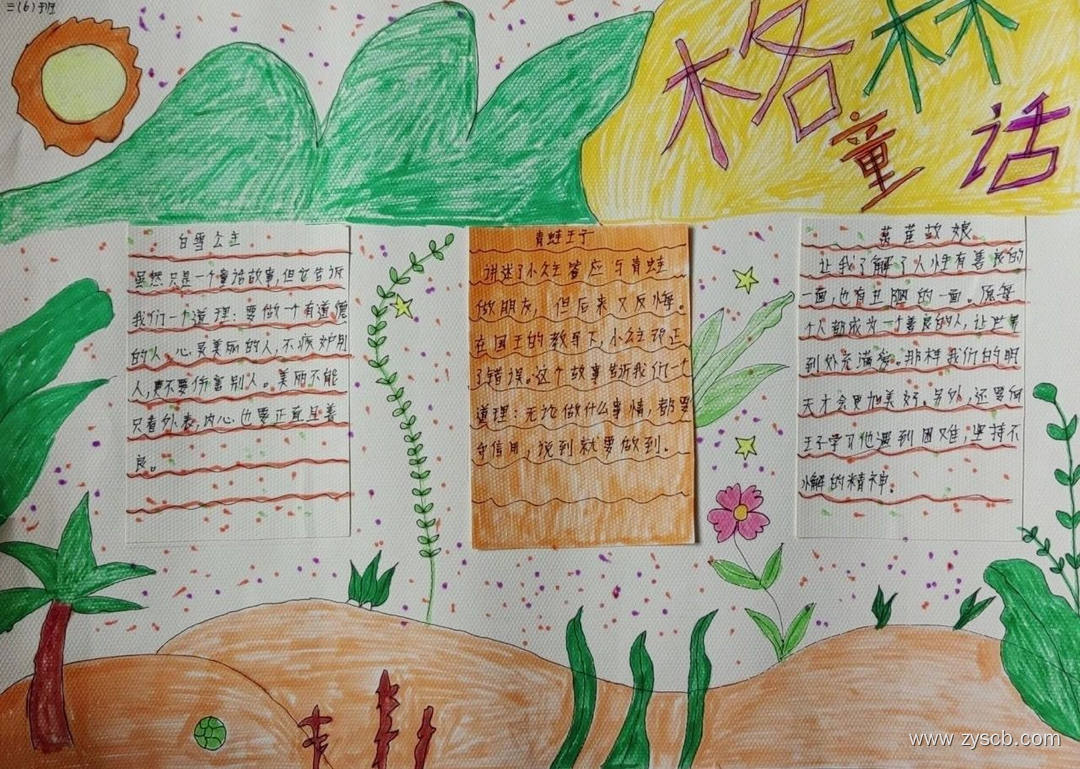 三(6)班
格林
童话
白雪公主
虽然只是一个童话故事,但它告诉
我们一个道理:要做一个有道德
的人、心灵美丽的人,不嫉妒别
人,更不要伤害别人。美丽不能
只看外表,内心也要正直且善
良。
青蛙王子
讲述了小公主答应与青蛙
做朋友,但后来又反悔。
在国王的教导下,小公主改正
了错误。这个故事告诉我们一个
道理:无论做什么事情,都要
守信用,说到就要做到。
莴苣姑娘
让我了解了人性有善良的
一面,也有丑陋的一面。愿每
个人都成为一个善良的人,让世界
到处充满爱。那样我们的明
天才会更加美好。另外,还要向
王子学习他遇到困难,坚持不
懈的精神。
www.zyscb.com